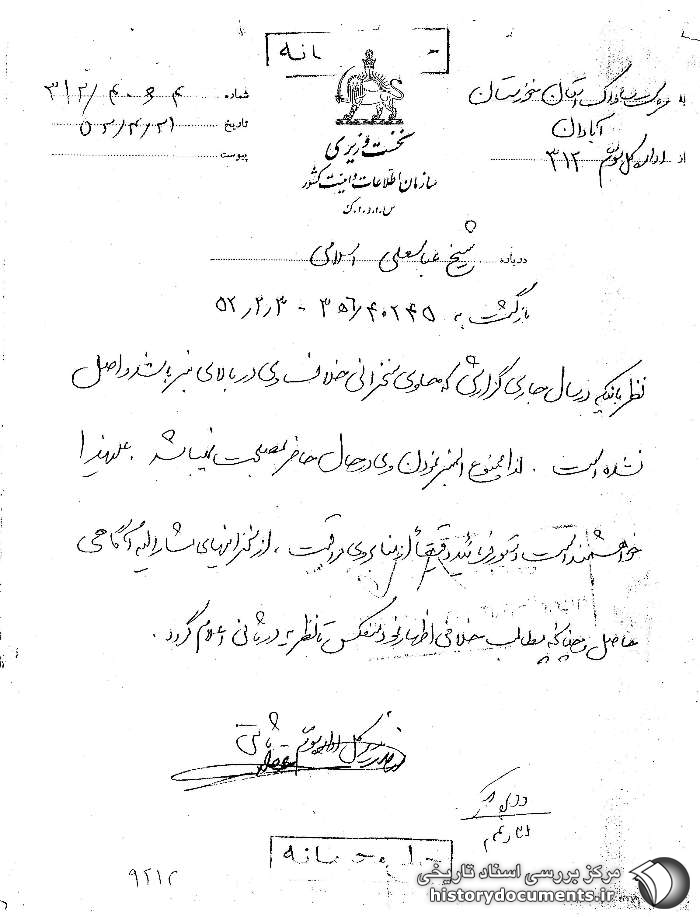 شماره ۳۱۲/۴۰۶۴
تاریخ ۵۲/۴/۲۱
پیوست
نخست وزیری
سازمان اطلاعات و امنیت کشور
س.ا.و.ا.ک
به ساواک استان خوزستان
آبادان
از اداره کل سوم ۳۱۲
درباره شیخ عباسعلی اسلامی
بازگشت به ۳۵۶/۴۰۲۴۵ - ۵۲/۲/۳
نظر باینکه در سال جاری گزارشی که حاوی سخنرانی خلاف وی در بالای منبر باشد واصل
نشده است . لذا ممنوع المنبر نمودن وی در حال حاضر بمصلحت نمیباشد . علیهذا
خواهشمند است دستور فرمائید دقیقاً از منابر وی مراقبت ، از سخنرانیهای مشارالیه آگاهی
حاصل و چنانچه مطالب خلافی اظهار نمود منعکس تا نظریه در ثانی اعلام گردد .
مدیر کل اداره سوم ثابتی
۹۲۱۲
مرکز بررسی اسناد تاریخی
historydocuments.ir